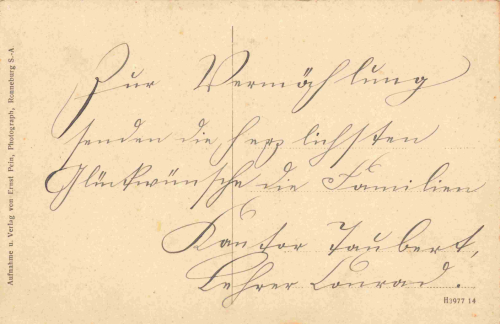 Zur Vermählung
senden die herzlichsten
Glückwünsche die Familien
Kantor Taubert,
Lehrer Conrad.
Aufnahme u. Verlag von Ernst Pein, Photograph, Ronneburg S.-A
H3977 14